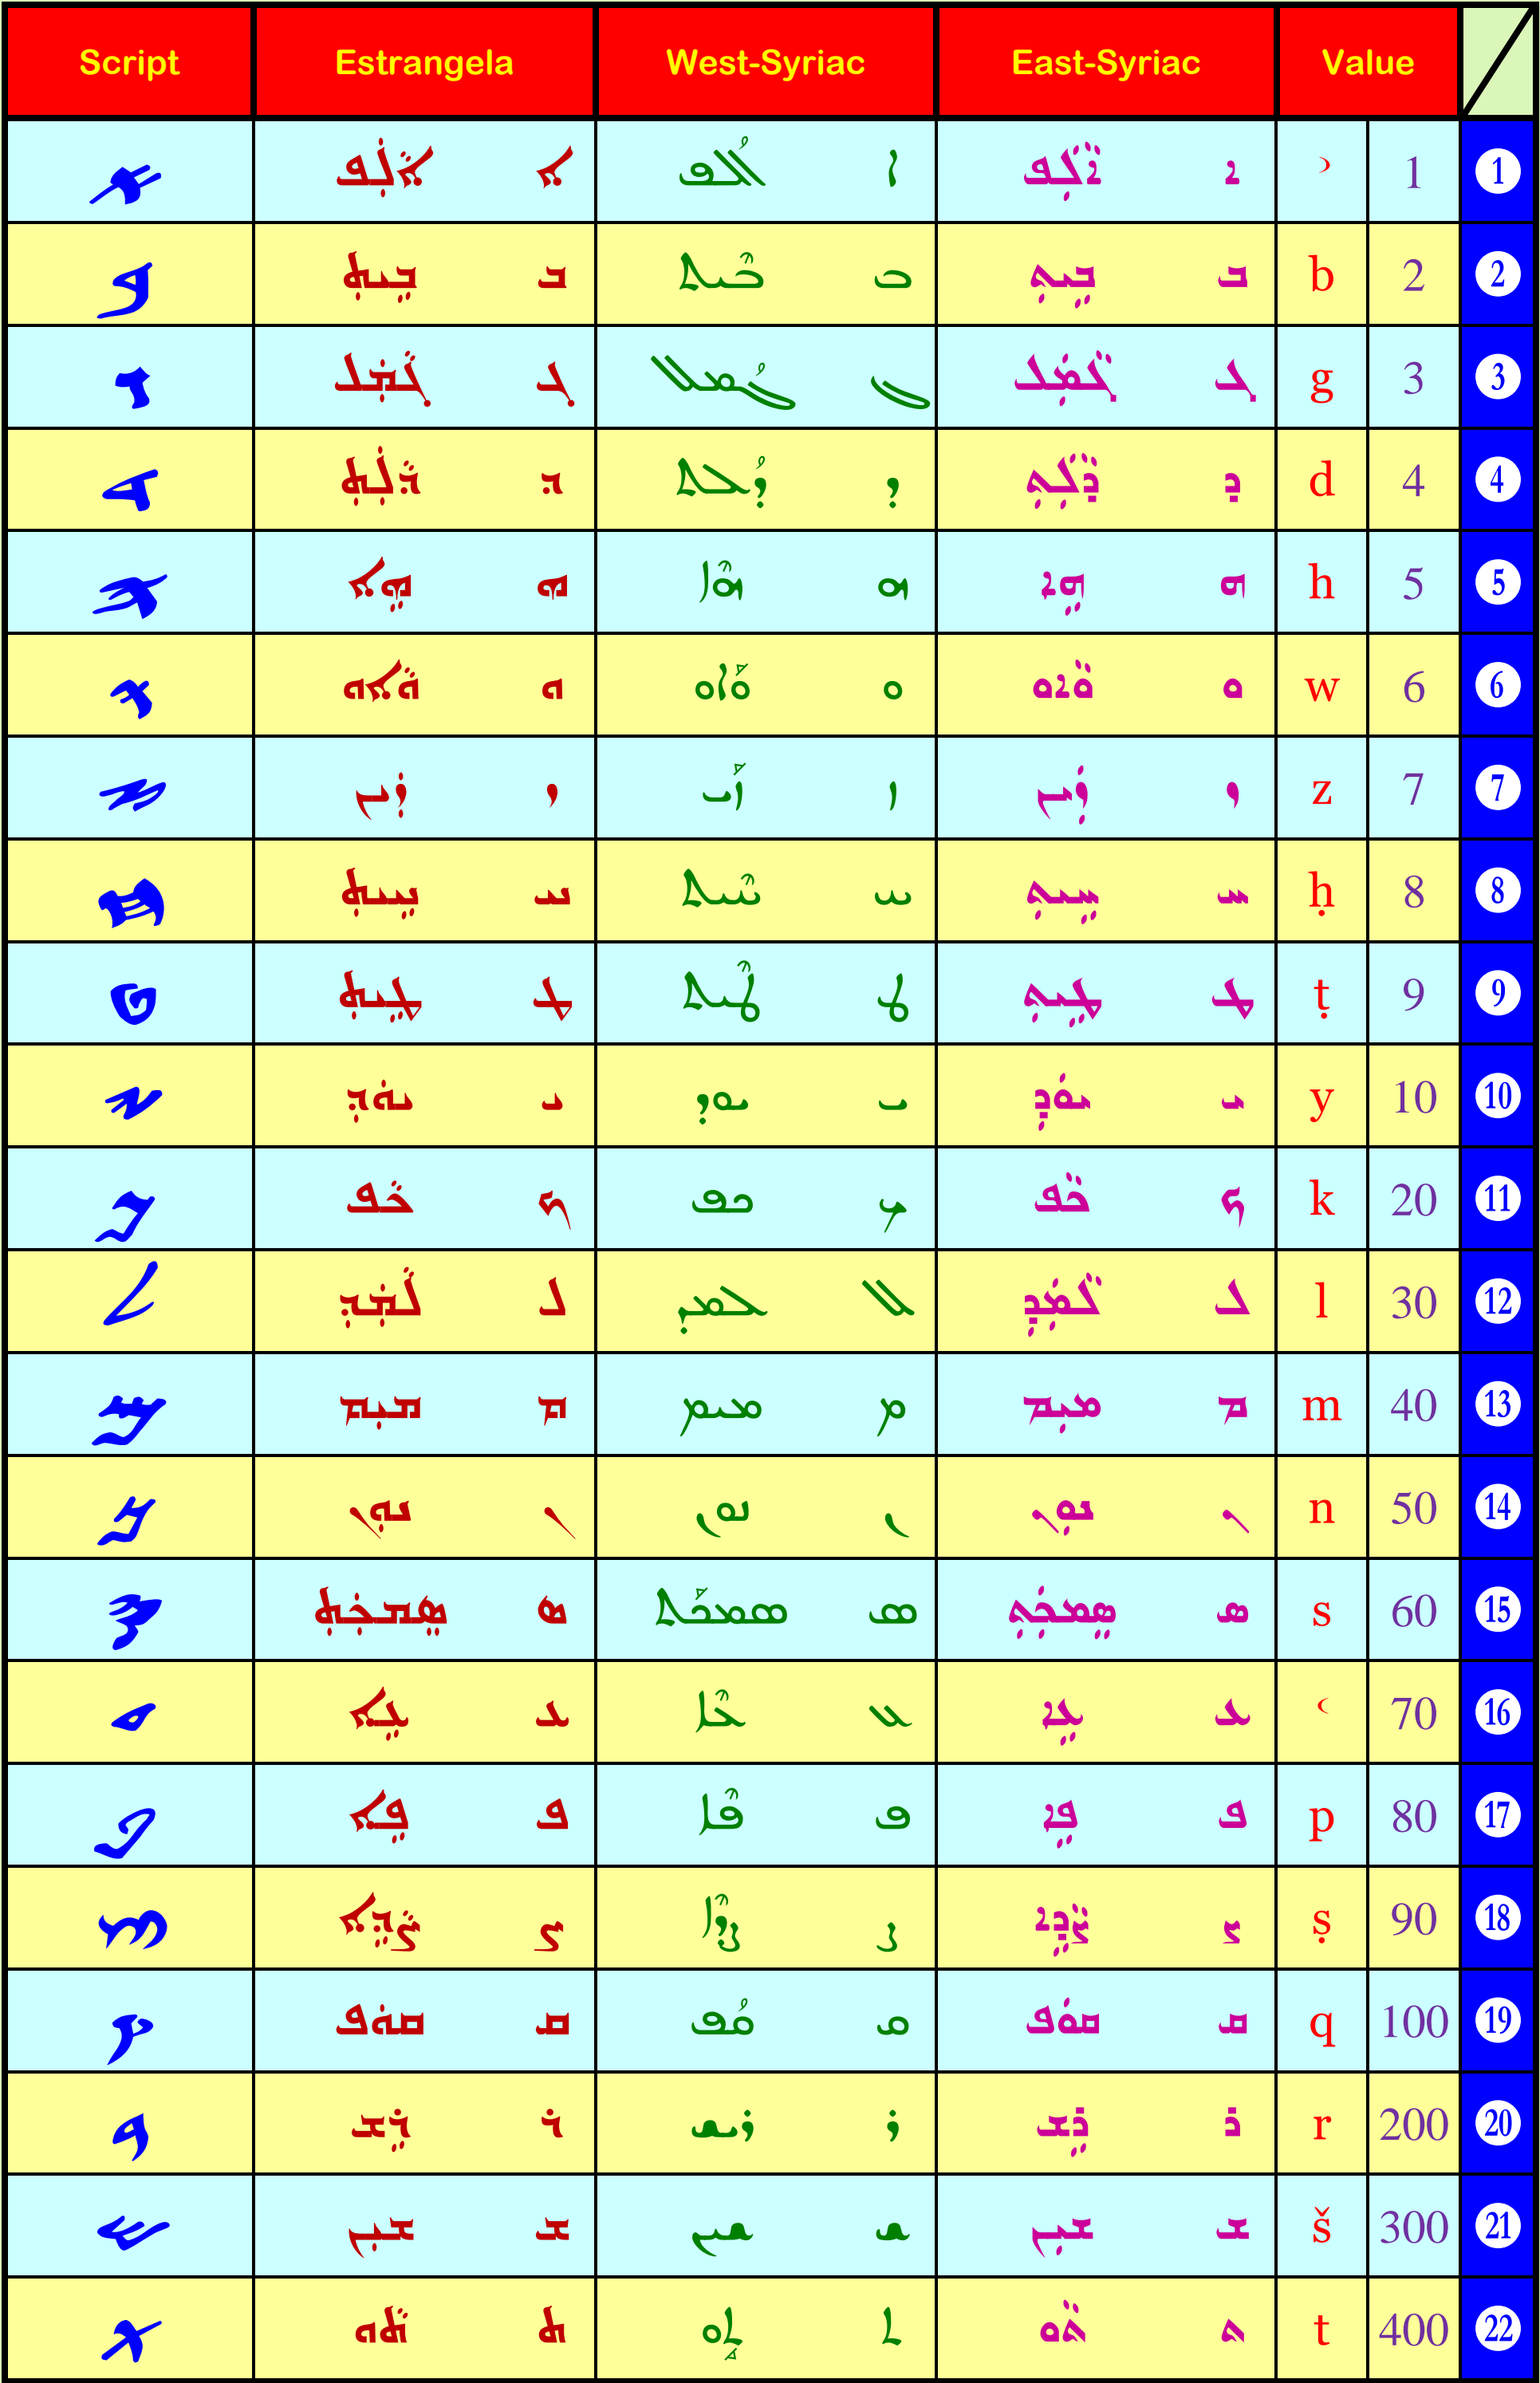 Script Estrangela West-Syriac East-Syriac Value
ܐܵܠܲܦ ܐ ܐܳܠܦ ܐ ܐܵܠܲܦ ܐ ʾ 1 1
ܒܹܝܬ݂ ܒ ܒܶܝܬ ܒ ܒܹܝܬ݂ ܒ b 2 2
ܓܵܡܲܠ ܓ ܓܳܡܠ ܓ ܓܵܡܲܠ ܓ g 3 3
ܕܵܠܲܬ݂ ܕ ܕܳܠܬ ܕ ܕܵܠܲܬ݂ ܕ d 4 4
ܗܹܐ ܗ ܗܶܐ ܗ ܗܹܐ ܗ h 5 5
ܘܵܐܘ ܘ ܘܰܐܘ ܘ ܘܵܐܘ ܘ w 6 6
ܙܲܝܢ ܙ ܙܰܝ ܙ ܙܲܝܢ ܙ z 7 7
ܚܹܝܬ݂ ܚ ܚܶܝܬ ܚ ܚܹܝܬ݂ ܚ ḥ 8 8
ܛܹܝܬ݂ ܛ ܛܶܝܬ ܛ ܛܹܝܬ݂ ܛ ṭ 9 9
ܝܘܿܕ݂ ܝ ܝܘܕ ܝ ܝܘܿܕ݂ ܝ y 10 10
ܟܵܦ ܟ ܟܦ ܟ ܟܵܦ ܟ k 20 11
ܠܵܡܲܕ݂ ܠ ܠܡܕ ܠ ܠܵܡܲܕ݂ ܠ l 30 12
ܡܝܼܡ ܡ ܡܝܡ ܡ ܡܝܼܡ ܡ m 40 13
ܢܘܼܢ ܢ ܢܘܢ ܢ ܢܘܼܢ ܢ n 50 14
ܣܹܡܟܲܬ݂ ܣ ܣܡܟܰܬ ܣ ܣܹܡܟܲܬ݂ ܣ s 60 15
ܥܹܐ ܥ ܥܶܐ ܥ ܥܹܐ ܥ ʿ 70 16
ܦܹܐ ܦ ܦܶܐ ܦ ܦܹܐ ܦ p 80 17
ܨܵܕܹܐ ܨ ܨܕܶܐ ܨ ܨܵܕܹܐ ܨ ṣ 90 18
ܩܘܿܦ ܩ ܩܳܦ ܩ ܩܘܿܦ ܩ q 100 19
ܪܹܫ ܪ ܪܝܫ ܪ ܪܹܫ ܪ r 200 20
ܫܝܼܢ ܫ ܫܝܢ ܫ ܫܝܼܢ ܫ š 300 21
ܬܵܘ ܬ ܬܱܘ ܬ ܬܵܘ ܬ t 400 22